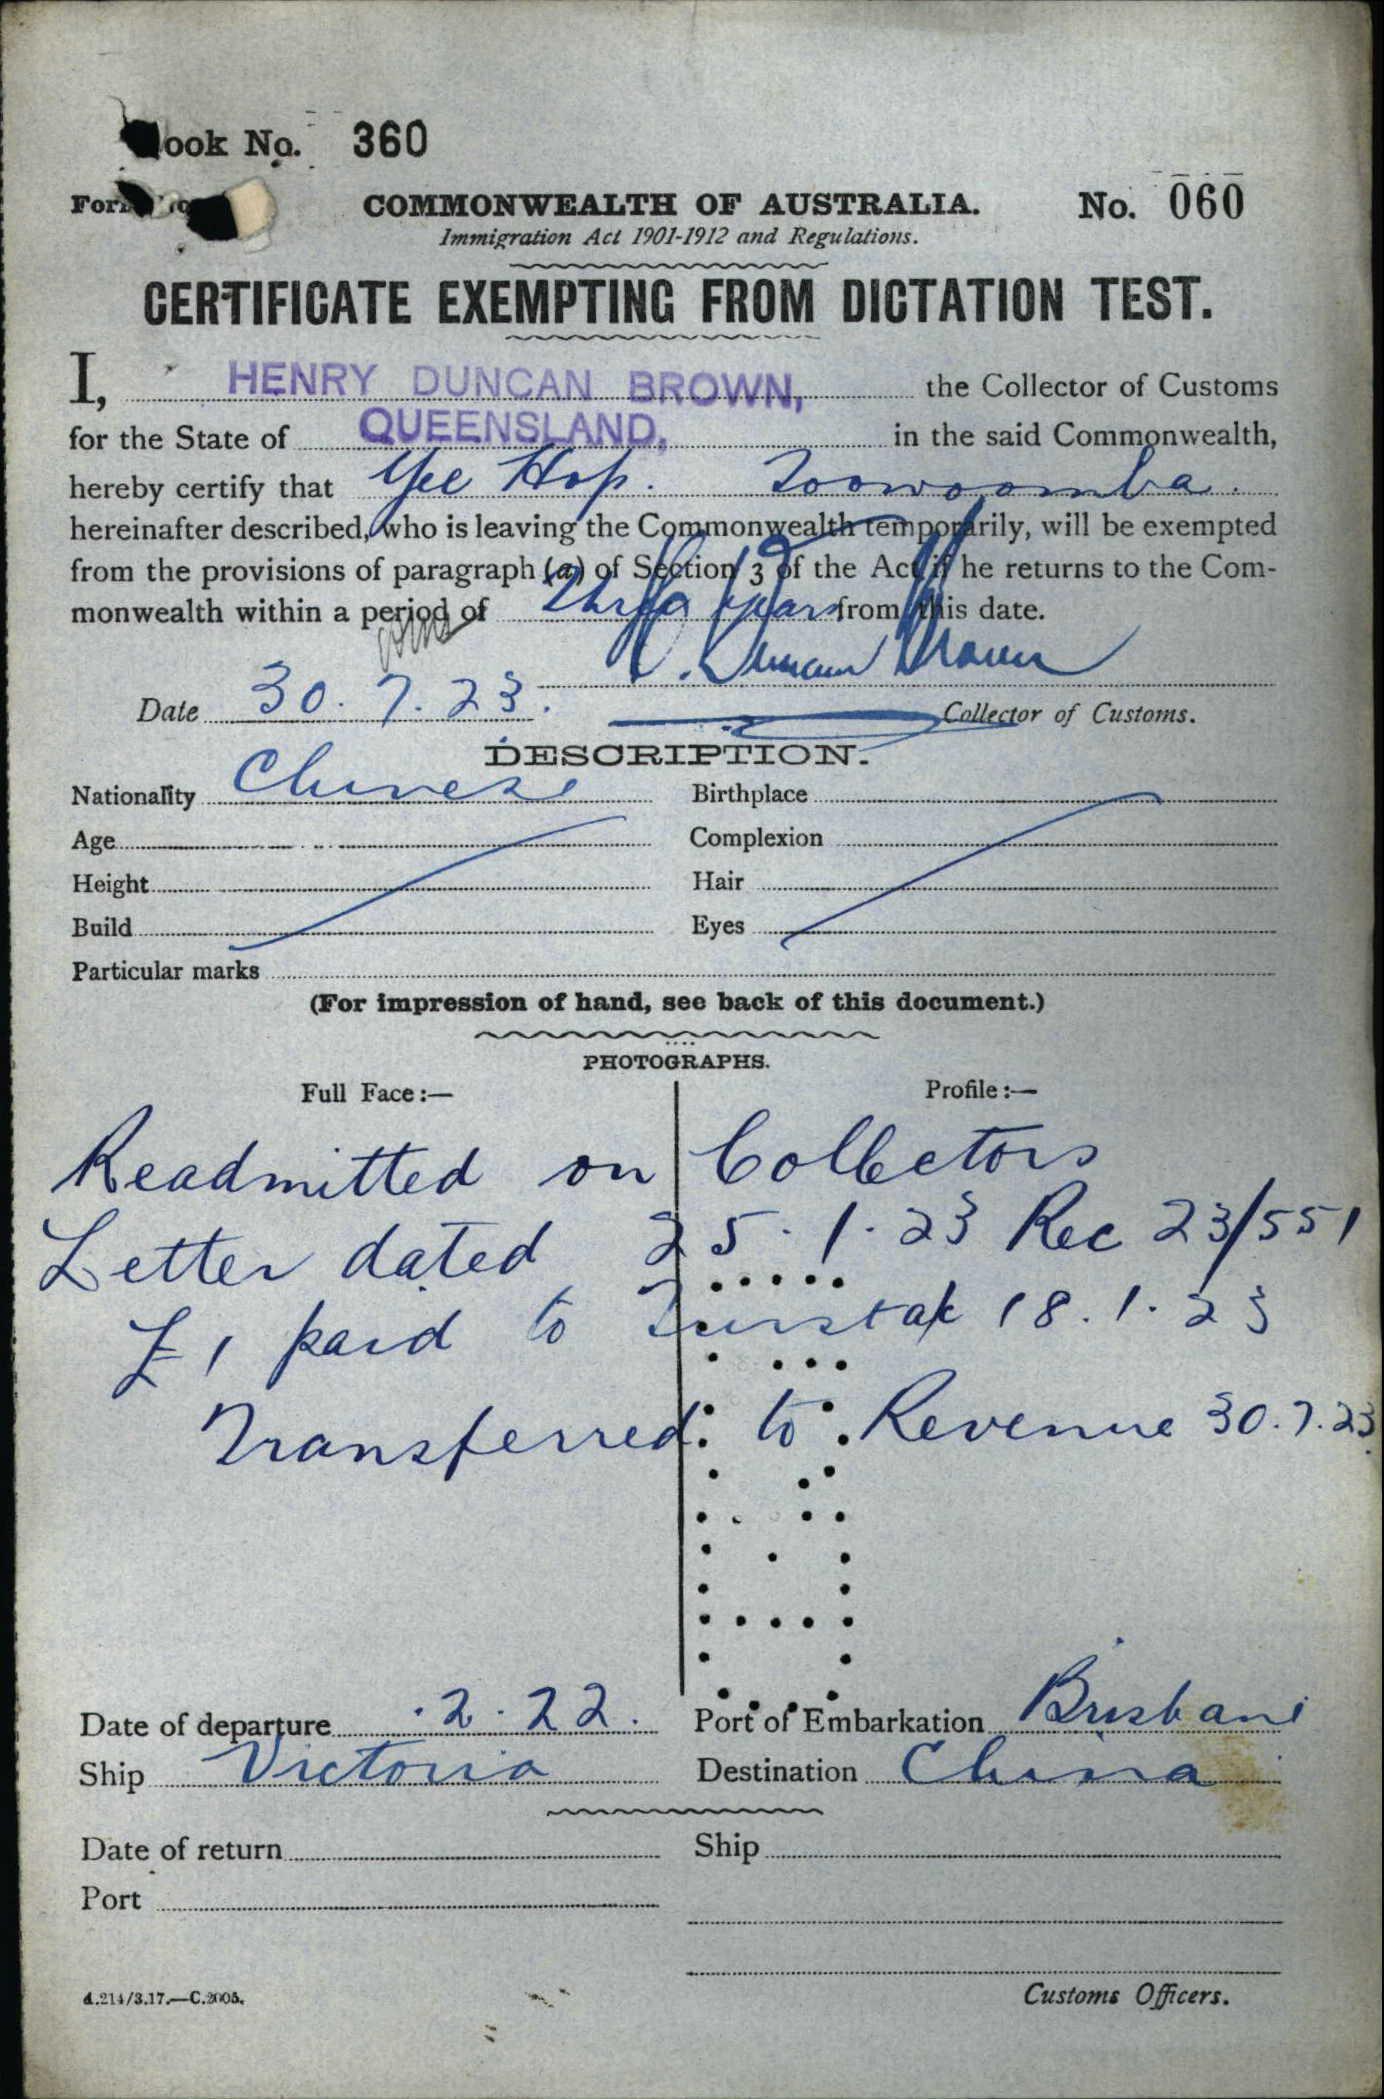 ook No. 360
COMMONWEALTH OF AUSTRALIA. No. 060
Immigration Act 1901-1912 and Regulations.
CERTIFICATE EXEMPTING FROM DICTATION TEST.
I, HENRY DUNCAN BROWN, the Collector of Customs
for the State of QUEENSLAND, in the said Commonwealth,
hereby certify that Yee Hop. Toowoomba.
hereinafter described, who is leaving the Commonwealth temporarily, will be exempted
from the provisions of paragraph (a) of Section 3 of the Act if he returns to the Com-
monwealth within a period of Three years from this date.
H. Duncan Brown
Date 30.7.23. Collector of Customs.
DESCRIPTION.
Nationality Chinese Birthplace
Age Complexion
Height Hair
Build Eyes
Particular marks
(For impression of hand, see back of this document.)
PHOTOGRAPHS.
Full Face:— Profile:—
Readmitted on Collectors
Letter dated 25.1.23 Rec 23/551
£1 paid to 18.1.23
Transferred to Revenue 30.7.23
Date of departure .2.22. Port of Embarkation Brisbane
Ship Victoria Destination China
Date of return Ship
Port
A.214/3.17.—C.2005. Customs Officers.